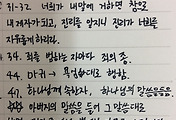 31-32 너희가 내 말에 거하면 참으로
내 제자가 되고, 진리를 알지니 진리가 너희를
자유롭게 하리라.
34. 죄를 범하는 자마다 죄의 종.
44. 마귀 → 욕심대로 행함.
47. 하나님께 속한 자, 하나님의 말씀을 들음
아버지의 말씀을 들어 그 말씀대로